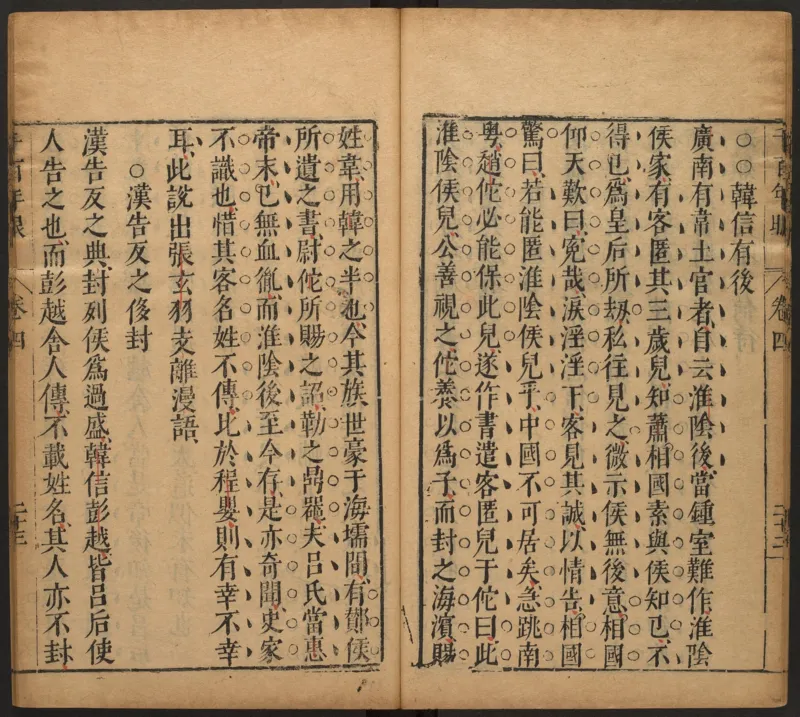 韓信有後
廣南有韋土官者自云淮陰後當鍾室難作淮陰
侯家有客匿其三歲兒知蕭相國素與侯知已不
得已爲皇后所劫私往見之微示侯無後意相國
仰天歎曰冤哉淚淫淫下客見其誠以情告相國
驚曰若能匿淮陰侯兒乎中國不可居矣急跳南
粤趙佗必能保此兒遂作書遣客匿兒于佗曰此
淮陰侯兒公善視之佗養以爲子而封之海濱賜
千百年眼
卷四
二十二
姓韋用韓之半也今其族世豪于海壖間有酇侯
所遺之書尉佗所賜之詔勒之鼎器夫呂氏當惠
帝末已無血胤而淮陰後至今存是亦奇聞史家
不識也惜其客名姓不傳比於程嬰則有幸不幸
耳此說出張玄羽支離漫語
漢告反之侈封
漢告反之典封列侯爲過盛韓信彭越皆呂后使
人告之也而彭越舍人傳不載姓名其人亦不封
千百年眼
卷四
二十三